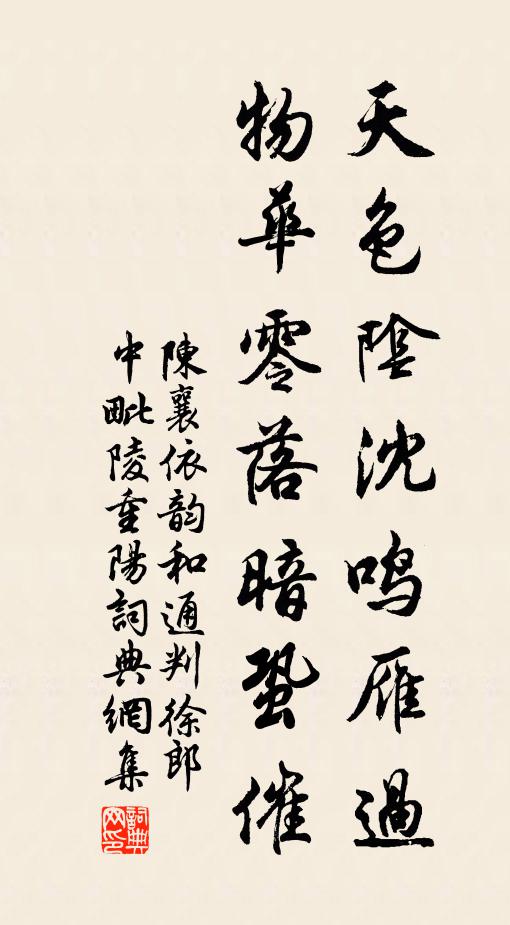 天色陰沈鳴雁過
物華零落暗蛩催
陳襄依韵和通判徐郎
中毗陵重陽詞典網集
詞典网印